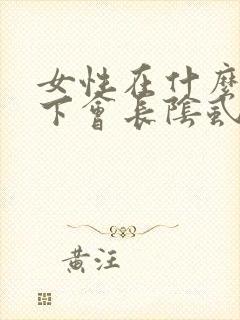 女性在什麼
下會長陰虱
黃汪